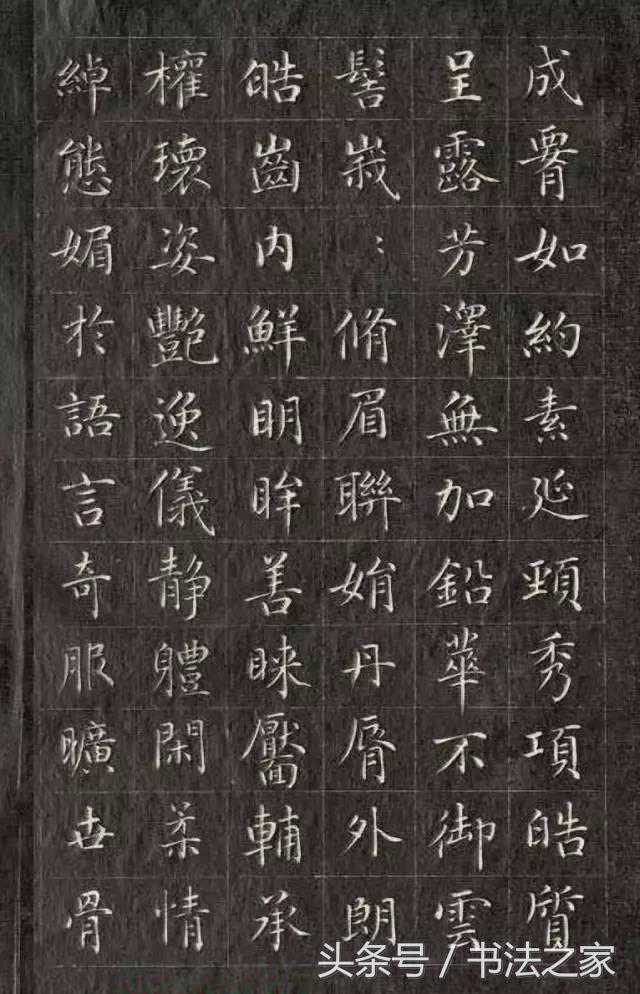 成如約素延頸秀項皓質
呈露芳澤無加鉛華不御雲
髻峩〻脩眉聯娟丹脣外朗
皓齒内鮮明眸善睞靨輔承
權瓌姿豔逸儀静軆閑柔情
綽態媚於語言奇服曠世骨
头条号 / 书法之家